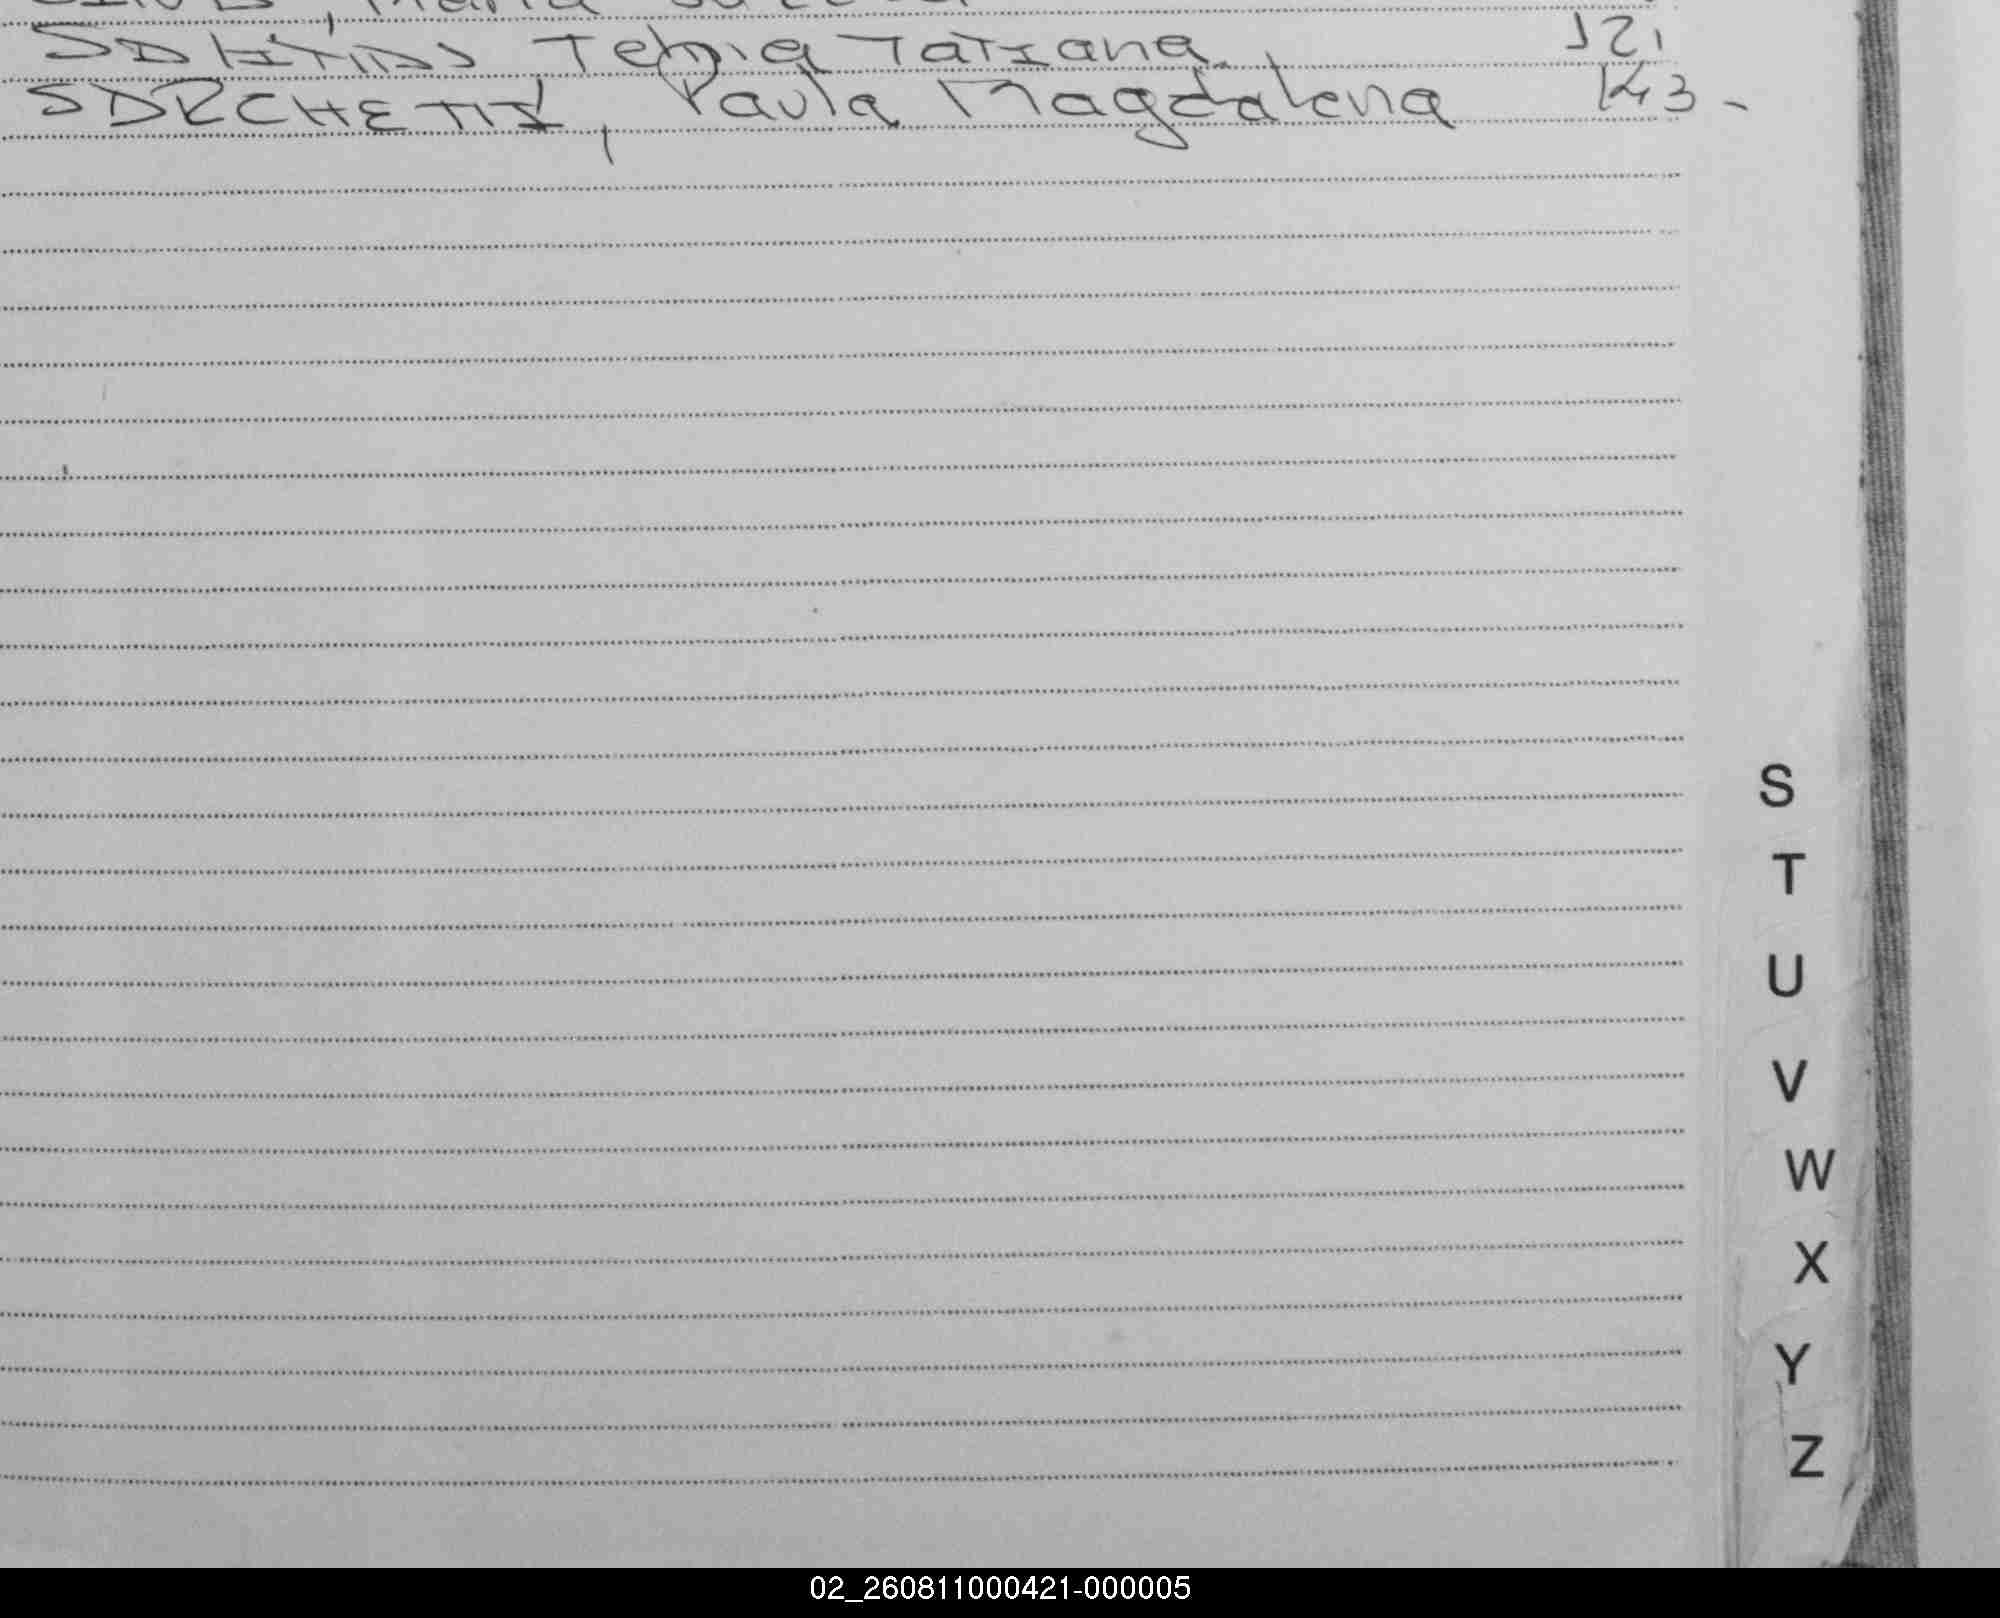 Maria
Tatiana 121
SORCHETTI, Paula Magdalena 143-
S
T
U
V
W
X
Y
Z
02_260811000421-000005